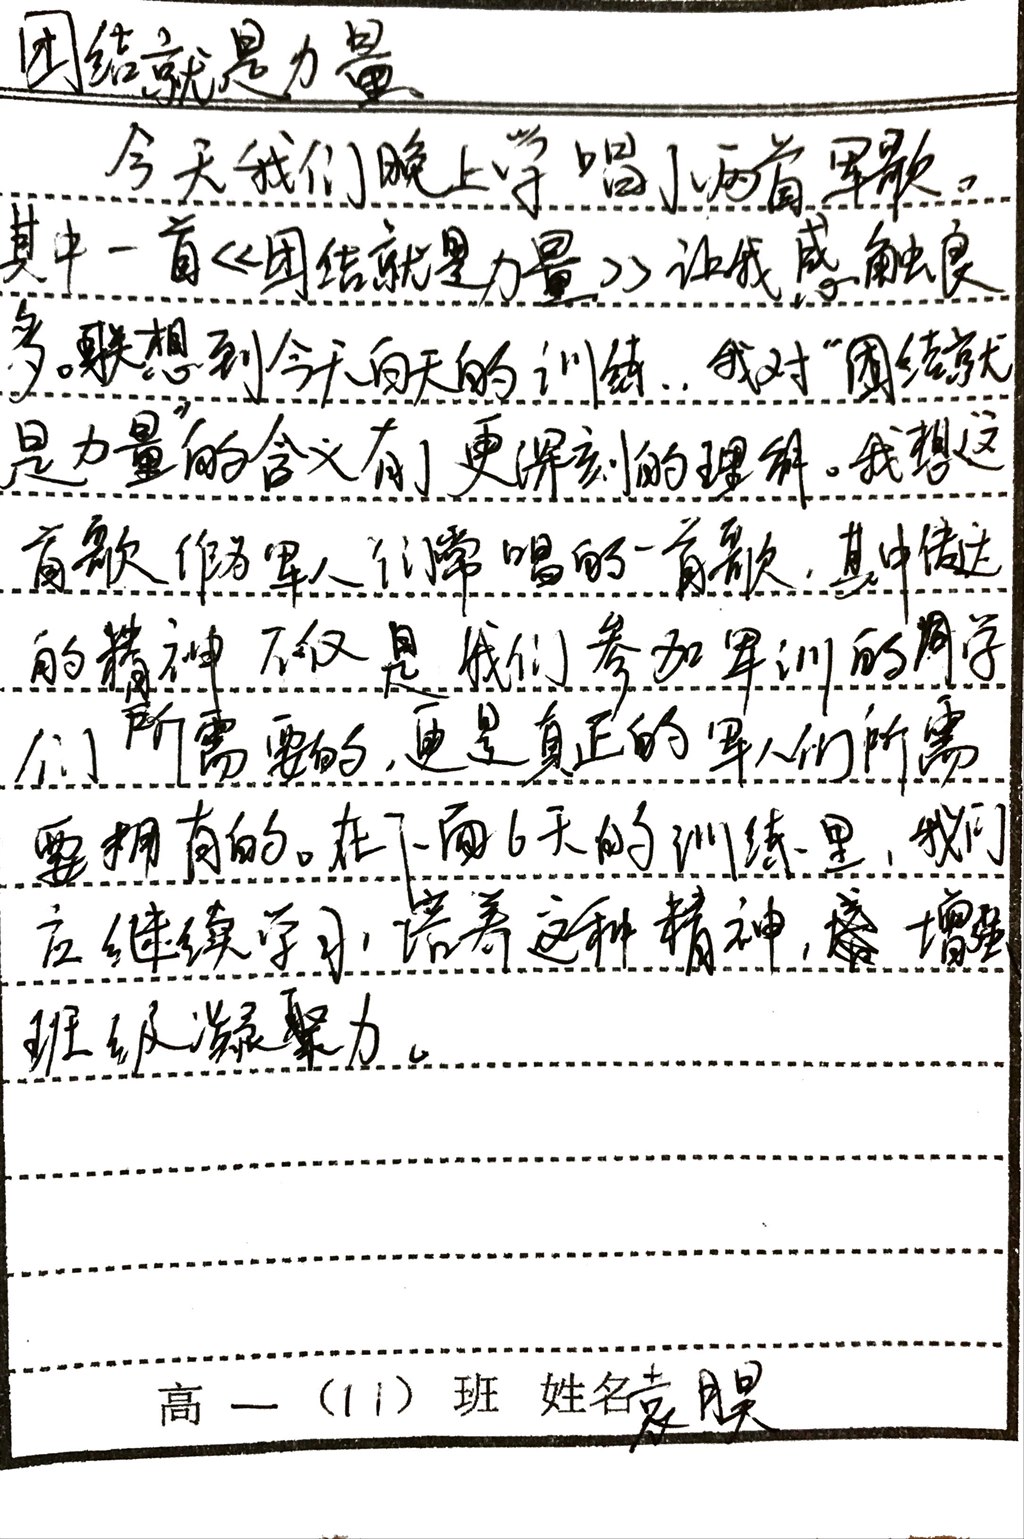 团结就是力量
今天我们晚上学唱了两首军歌。
其中一首《团结就是力量》让我感触良
多。联想到今天白天的训练,我对“团结就
是力量”的含义有了更深刻的理解。我想这
首歌作为军人们常唱的一首歌,其中传达
的精神不仅是我们参加军训的同学
们所需要的,更是真正的军人们所需
要拥有的。在下面6天的训练里,我们
应继续学习,培养这种精神,增强
班级凝聚力。
高一(11)班 姓名袁